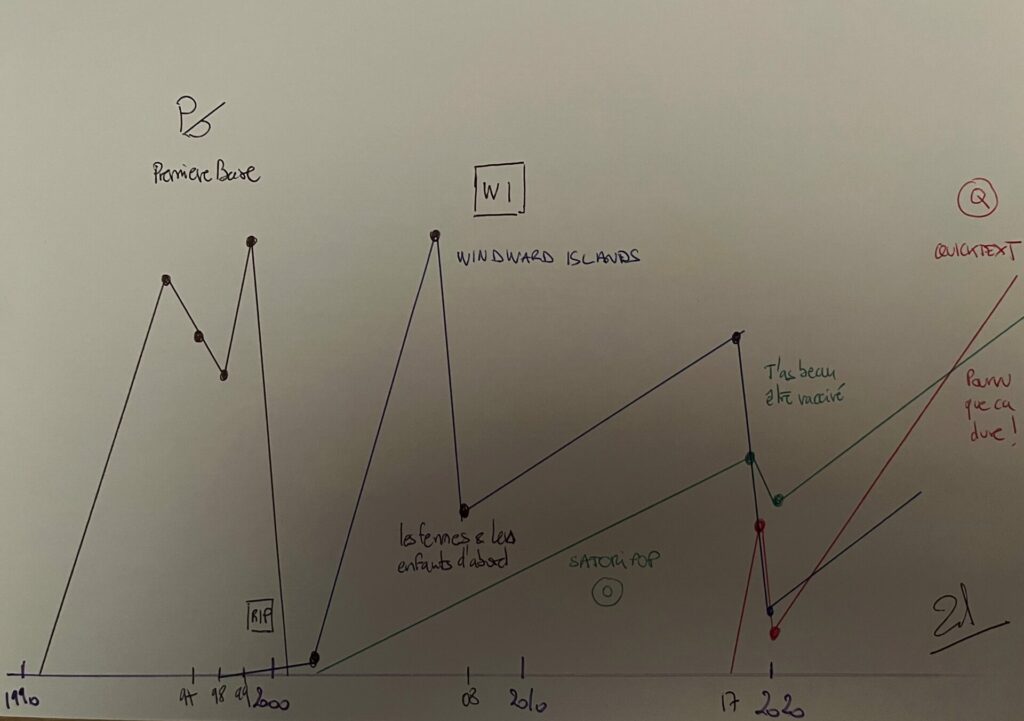 PB
Premiere Base
WI
WINDWARD ISLANDS
Q
QUICKTEXT
T'as beau
être vacciné
Pourvu
que ca
dure !
les femmes & les
enfants d'abord
SATORIPOP
O
RIP
1990
97
98
99
2000
08
2010
17
2020